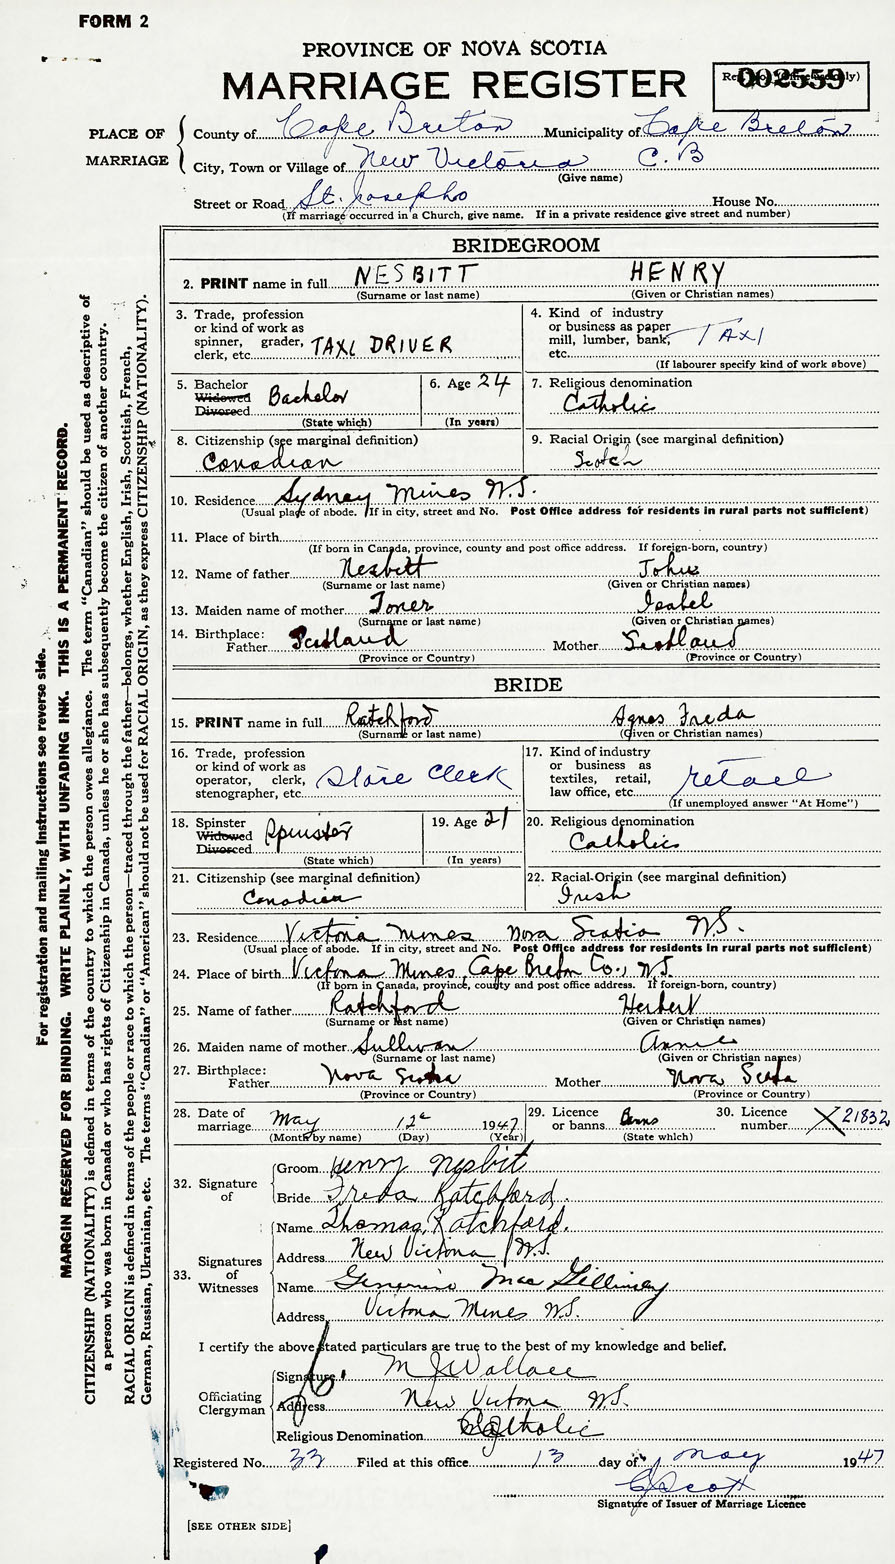 FORM 2
PROVINCE OF NOVA SCOTIA
MARRIAGE REGISTER
002559
PLACE OF MARRIAGE
County of Cape Breton Municipality of Cape Breton
City, Town or Village of New Victoria C.B
(Give name)
Street or Road St. Josephs House No.
(If marriage occurred in a Church, give name. If in a private residence give street and number)
BRIDEGROOM
2. PRINT name in full NESBITT HENRY
(Surname or last name) (Given or Christian names)
3. Trade, profession or kind of work as spinner, grader, clerk, etc. TAXI DRIVER
4. Kind of industry or business as paper mill, lumber, bank, etc. TAXI
(If labourer specify kind of work above)
5. Bachelor Widowed Divorced Bachelor
(State which)
6. Age 24
(In years)
7. Religious denomination
Catholic
8. Citizenship (see marginal definition)
Canadian
9. Racial Origin (see marginal definition)
Scotch
10. Residence Sydney Mines N.S.
(Usual place of abode. If in city, street and No. Post Office address for residents in rural parts not sufficient)
11. Place of birth
(If born in Canada, province, county and post office address. If foreign-born, country)
12. Name of father Nesbitt John
(Surname or last name) (Given or Christian names)
13. Maiden name of mother Toner Isabel
(Surname or last name) (Given or Christian names)
14. Birthplace:
Father Scotland Mother Scotland
(Province or Country) (Province or Country)
BRIDE
15. PRINT name in full Ratchford Agnes Freda
(Surname or last name) (Given or Christian names)
16. Trade, profession or kind of work as operator, clerk, stenographer, etc. Store Clerk
17. Kind of industry or business as textiles, retail, law office, etc. retail
(If unemployed answer "At Home")
18. Spinster Widowed Divorced Spinster
(State which)
19. Age 21
(In years)
20. Religious denomination
Catholic
21. Citizenship (see marginal definition)
Canadian
22. Racial-Origin (see marginal definition)
Irish
23. Residence Victoria Mines Nova Scotia N.S.
(Usual place of abode. If in city, street and No. Post Office address for residents in rural parts not sufficient)
24. Place of birth Victoria Mines, Cape Breton Co., N.S.
(If born in Canada, province, county and post office address. If foreign-born, country)
25. Name of father Ratchford Herbert
(Surname or last name) (Given or Christian names)
26. Maiden name of mother Sullivan Annie
(Surname or last name) (Given or Christian names)
27. Birthplace:
Father Nova Scotia Mother Nova Scotia
(Province or Country) (Province or Country)
28. Date of marriage May 12 1947
(Month by name) (Day) (Year)
29. Licence or banns Banns
(State which)
30. Licence number X 21832
32. Signature of
Groom Henry Nesbit
Bride Freda Ratchford
33. Signatures of Witnesses
Name Thomas Ratchford.
Address New Victoria N.S.
Name Mac Gillivray
Address Victoria Mines N.S.
I certify the above stated particulars are true to the best of my knowledge and belief.
Officiating Clergyman
Signature M J Wallace
Address New Victoria N.S.
Religious Denomination Catholic
Registered No. 33 Filed at this office 13 day of May 1947
C Scott
Signature of Issuer of Marriage Licence
[SEE OTHER SIDE]
For registration and mailing instructions see reverse side.
MARGIN RESERVED FOR BINDING. WRITE PLAINLY, WITH UNFADING INK. THIS IS A PERMANENT RECORD.
CITIZENSHIP (NATIONALITY) is defined in terms of the country to which the person owes allegiance. The term "Canadian" should be used as descriptive of
a person who was born in Canada or who has rights of Citizenship in Canada, unless he or she has subsequently become the citizen of another country.
RACIAL ORIGIN is defined in terms of the people or race to which the person—traced through the father—belongs, whether English, Irish, Scottish, French,
German, Russian, Ukrainian, etc. The terms "Canadian" or "American" should not be used for RACIAL ORIGIN, as they express CITIZENSHIP (NATIONALITY).